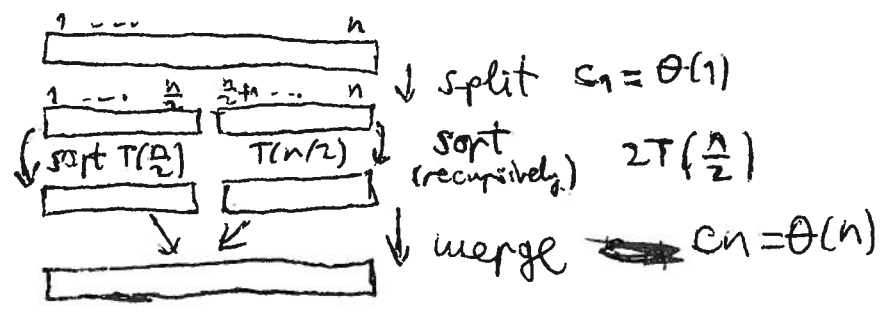 1 ---- n
split c₁ = Θ(1)
1 ---. n/2 n/2+1 ... n
sort T(n/2) T(n/2) sort 2T(n/2)
(recursively)
merge cn = Θ(n)